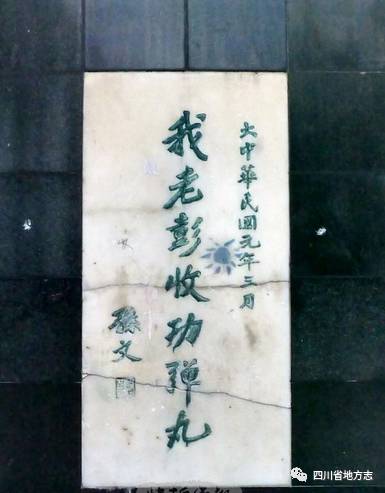 大中華民國元年三月
我老彭收功彈丸
孫文
四川省地方志